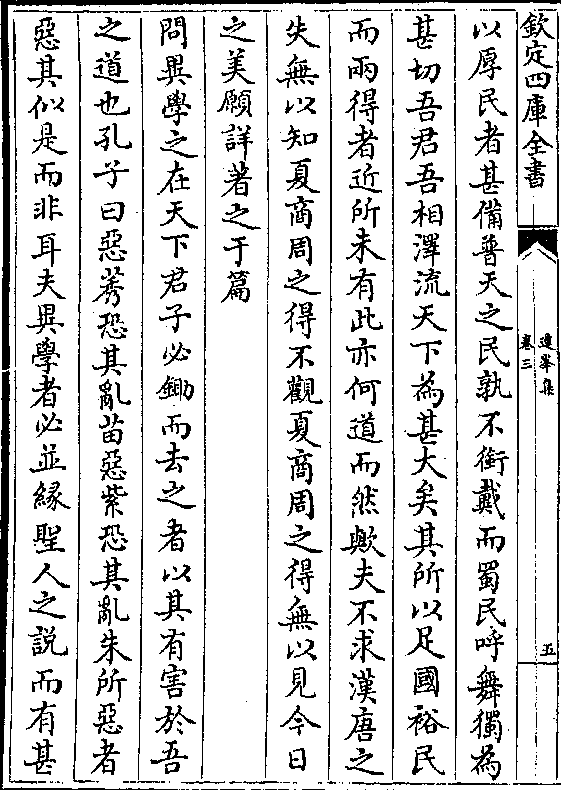 欽定四庫全書
蓮峯集
卷三
五
以厚民者甚備普天之民孰不銜戴而蜀民呼舞獨為
甚切吾君吾相澤流天下為甚大矣其所以足國裕民
而兩得者近所未有此亦何道而然歟夫不求漢唐之
失無以知夏商周之得不觀夏商周之得無以見今日
之美願詳著之于篇
問異學之在天下君子必鋤而去之者以其有害於吾
之道也孔子曰惡莠恐其亂苗惡紫恐其亂朱所惡者
惡其似是而非耳夫異學者必並緣聖人之說而有甚